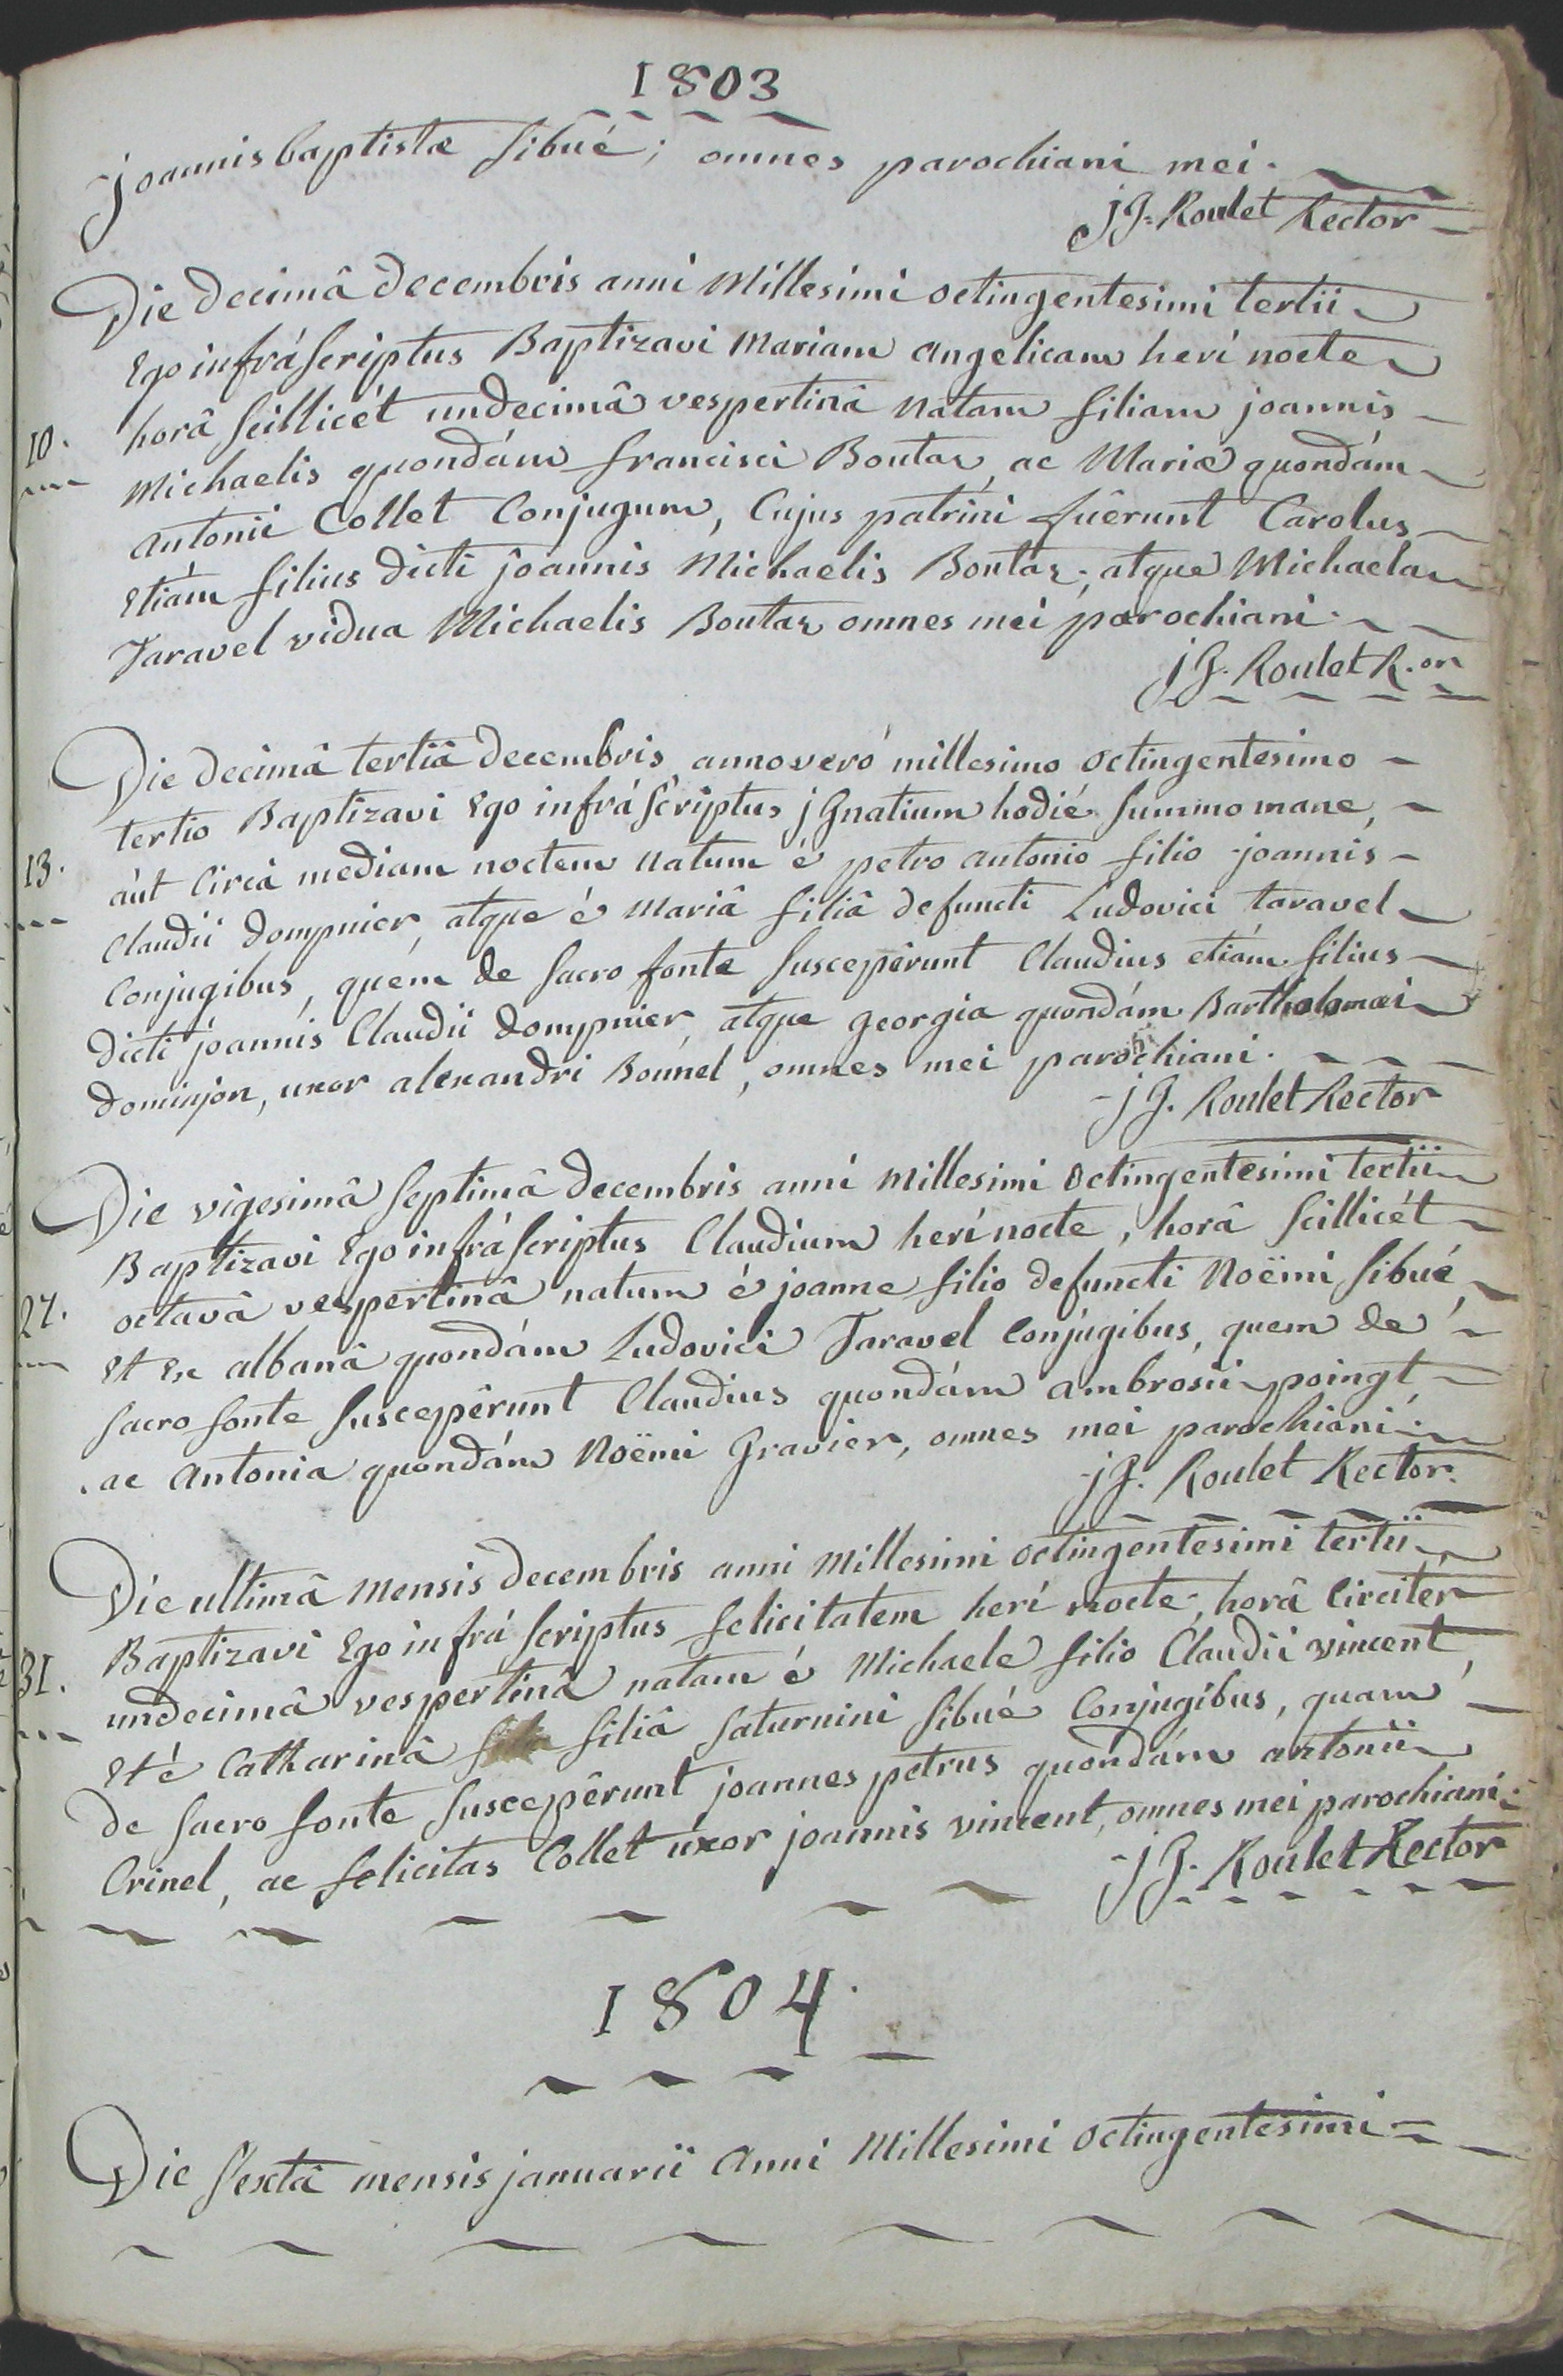 1803
joannis baptistæ sibué; omnes parochiani mei.
j G. Roulet Rector
Die decimâ decembris anni Millesimi octingentesimi tertii
Ego infráscriptus Baptizavi Mariam angelicam herí nocte
10. horâ scillicét undecimâ vespertinâ natam filiam joannis
Michaelis quondám francisci Boutaz, ac Mariæ quondám
antonii Collet Conjugum, Cujus patrini fuêrunt Carolus
Etiám filius dicti joannis Michaelis Boutaz, atque Michaela
Taravel vidua Michaelis Boutaz omnes mei parochiani.
j G. Roulet R.or
Die decimâ tertiâ decembris anno veró millesimo octingentesimo
tertio Baptizavi Ego infráscriptus jgnatium hodié summo mane,
13. áut Circá mediam noctem natum é petro antonio filio joannis
Claudii dompnier, atque é Mariâ filiâ defuncti Ludovici taravel
Conjugibus, quém de sacro fonte suscepêrunt Claudius etiám filius
dicti joannis Claudii dompnier, atque georgia quondám Bartholomæi
dominjon, uxor alexandri Bounel, omnes mei parochiani.
j G. Roulet Rector
Die vigesimâ septimâ decembris anni Millesimi octingentesimi tertii
Baptizavi Ego infráscriptus Claudium herí nocte, horâ scillicét
27. octavâ vespertinâ natum é joanne filio defuncti Noëmi sibué,
Et Ex albanâ quondám Ludovici Taravel Conjugibus, quem de
sacro fonte suscepêrunt Claudius quondám ambrosii poingt
ac antonia quondám Noëmi Gravier, omnes mei parochiani.
j G. Roulet Rector.
Die ultimâ mensis decembris anni Millesimi octingentesimi tertii
Baptizavi Ego infráscriptus felicitatem herí nocte, horâ Circitér
31. undecimâ vespertinâ natam é Michaele filio Claudii vincent,
Et é Catharinâ filiâ saturnini sibué Conjugibus, quam
de sacro fonte suscepêrunt joannes petrus quondám antonii
Crinel, ac felicitas Collet uxor joannis vincent, omnes mei parochiani.
j G. Roulet Rector
1804.
Die sextâ mensis januarii anni Millesimi octingentesimi